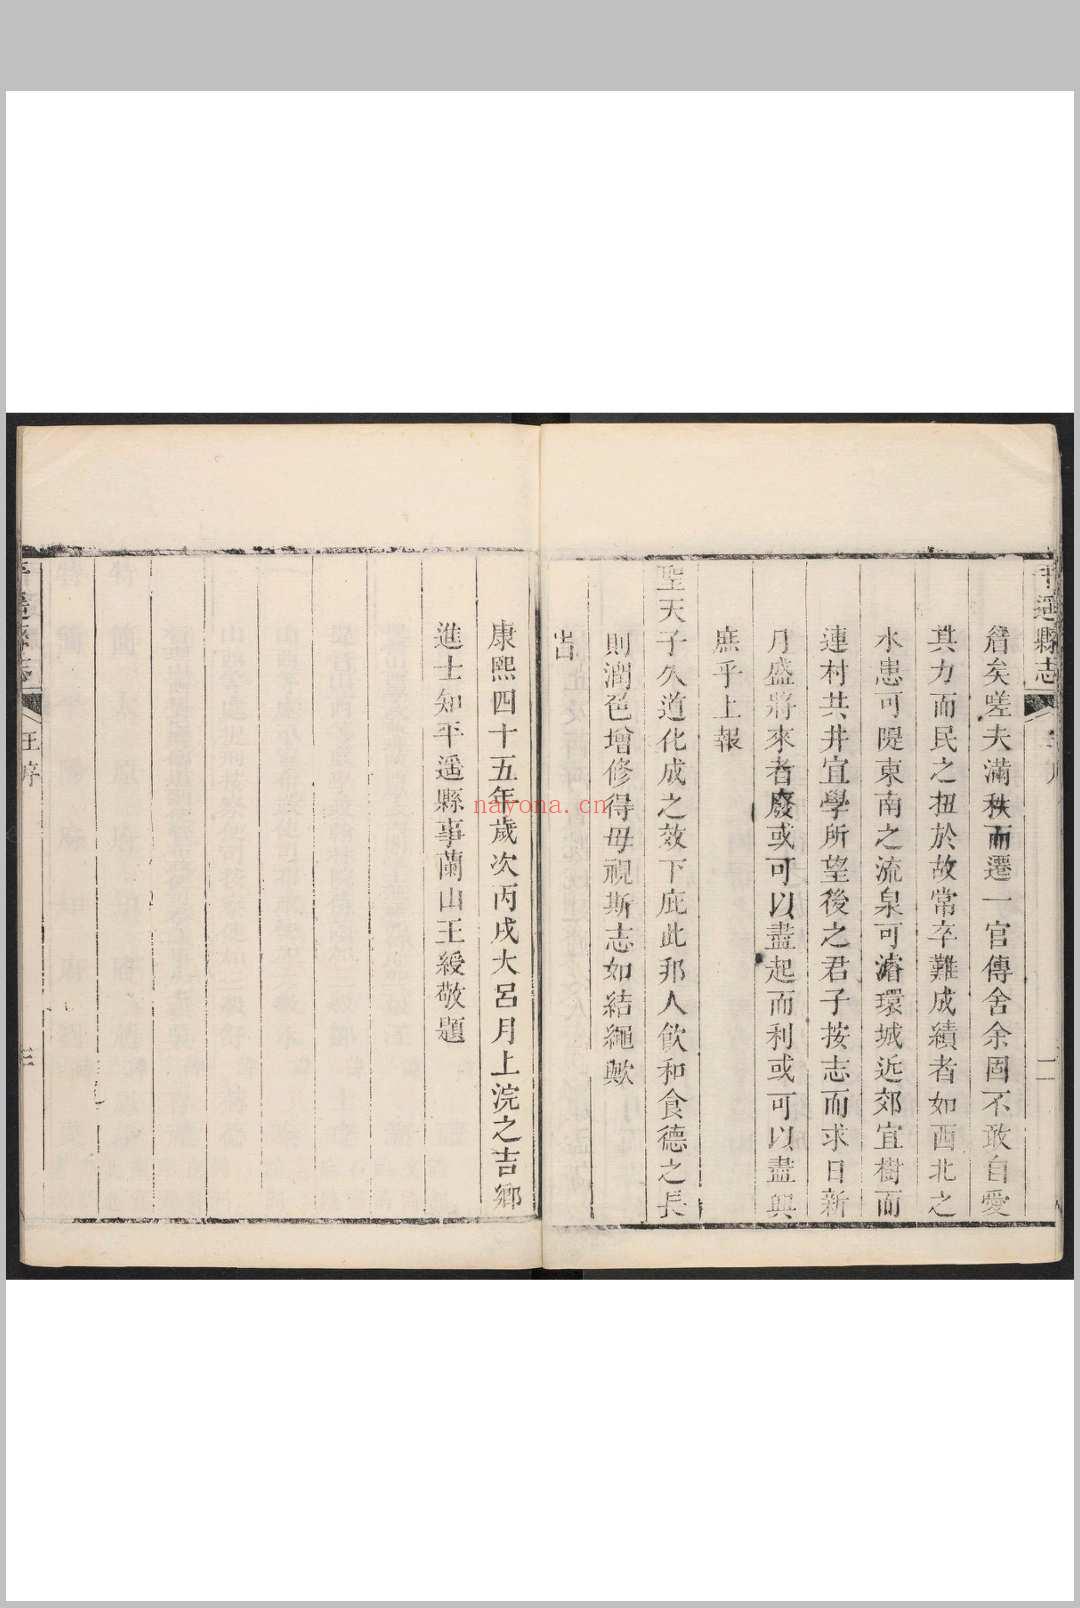 平遥縣志
二
簷矣嗟夫滿秩而遷一官傳舍余固不敢自愛
其力而民之扭於故常卒難成績者如西北之
水患可隄東南之流泉可濬環城近郊宜樹而
連村共井宜學所望後之君子按志而求日新
月盛將來者廢或可以盡起而利或可以盡興
庶乎上報
聖天子久道化成之效下庇此邦人飲和食德之長
則潤色增修得毋視斯志如結繩歟
康熙四十五年歲次丙戌大呂月上浣之吉鄉
進士知平遥縣事蘭山王綬敬題
平遥縣志
王序
三
nayona.cn